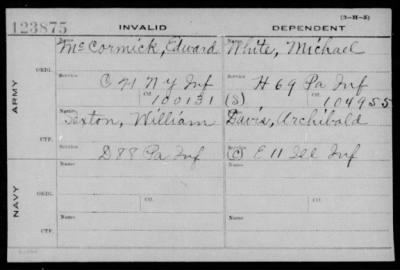 (3—H—5)
123875 INVALID DEPENDENT
Name Name
McCormick, Edward White, Michael
ORIG. Service Service
C 91 N Y Inf H 69 Pa Inf
Ctf. Ctf.
100131 (S) 104955
ARMY Name Name
Sexton, William Davis, Archibald
CTF. Service Service
D 88 Pa Inf (C) E 11 Ill Inf
Name Ctf. Name Ctf.
ORIG.
NAVY
Name Name
CTF.